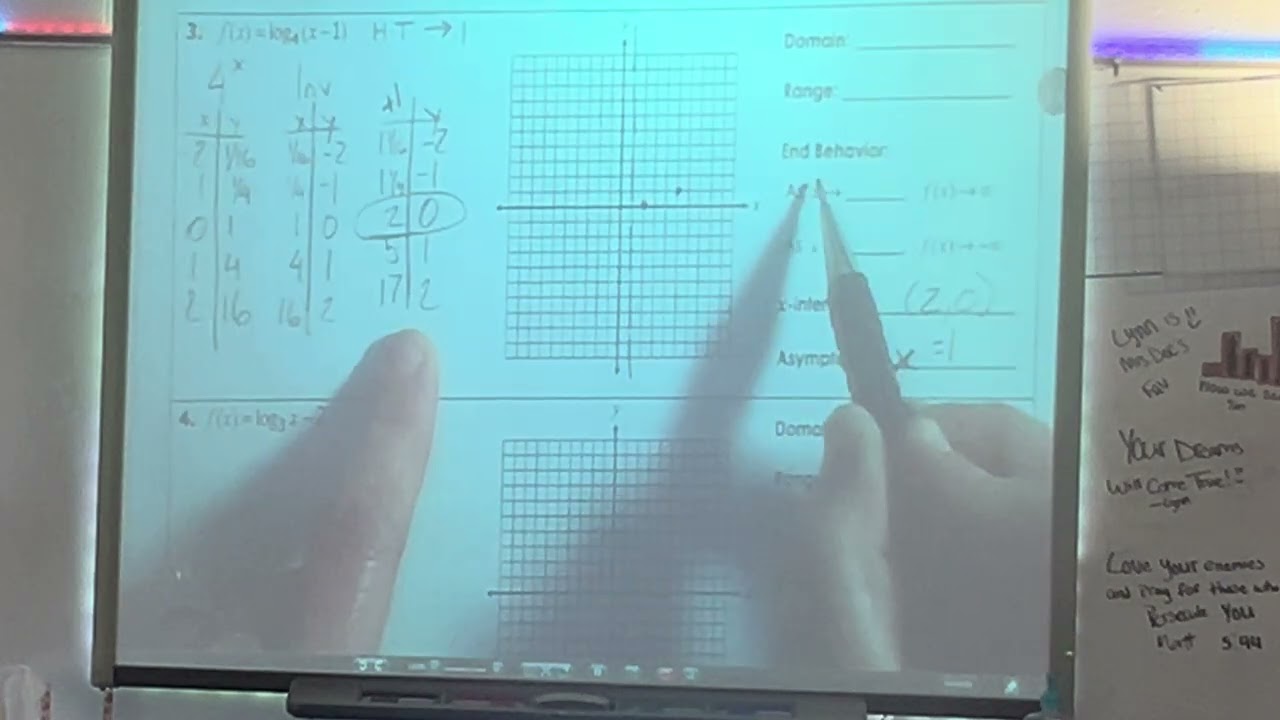 3. f(x) = log₄(x-1) HT → 1
4ˣ Inv
x y x y x1 y
2 1/16 1/16 -2 1 1/16 -2
1 1/4 1/4 -1 1 1/4 -1
0 1 1 0 2 0
1 4 4 1 5 1
2 16 16 2 17 2
y
x
Domain:
Range:
End Behavior:
As x → f(x) → ∞
As x f(x) → -∞
x-inter (2,0)
Asympt x =1
4. f(x) = log₃ x -
y
Doma
Lynn is
Mrs. Doc's
Fav
Your Dreams
Will Come True!!
-Lynn
Love your enemies
and Pray for those who
Persecute You
Matt 5:44